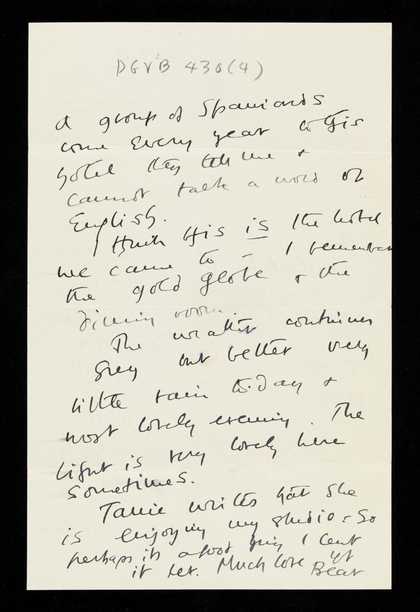 DGVB 430(4)
A group of Spaniards
come every year to this
hotel they tell me &
cannot talk a word of
English.
I think this is the hotel
we came to – I remember
the gold globe & the
dining room
The weather continues
Grey but better very
little rain to-day &
most lovely evening. The
light is very lovely here
sometimes.
Tanie writes that she
is enjoying my studio – So
perhaps its a good thing I lent
it her. Much love yr
Bear